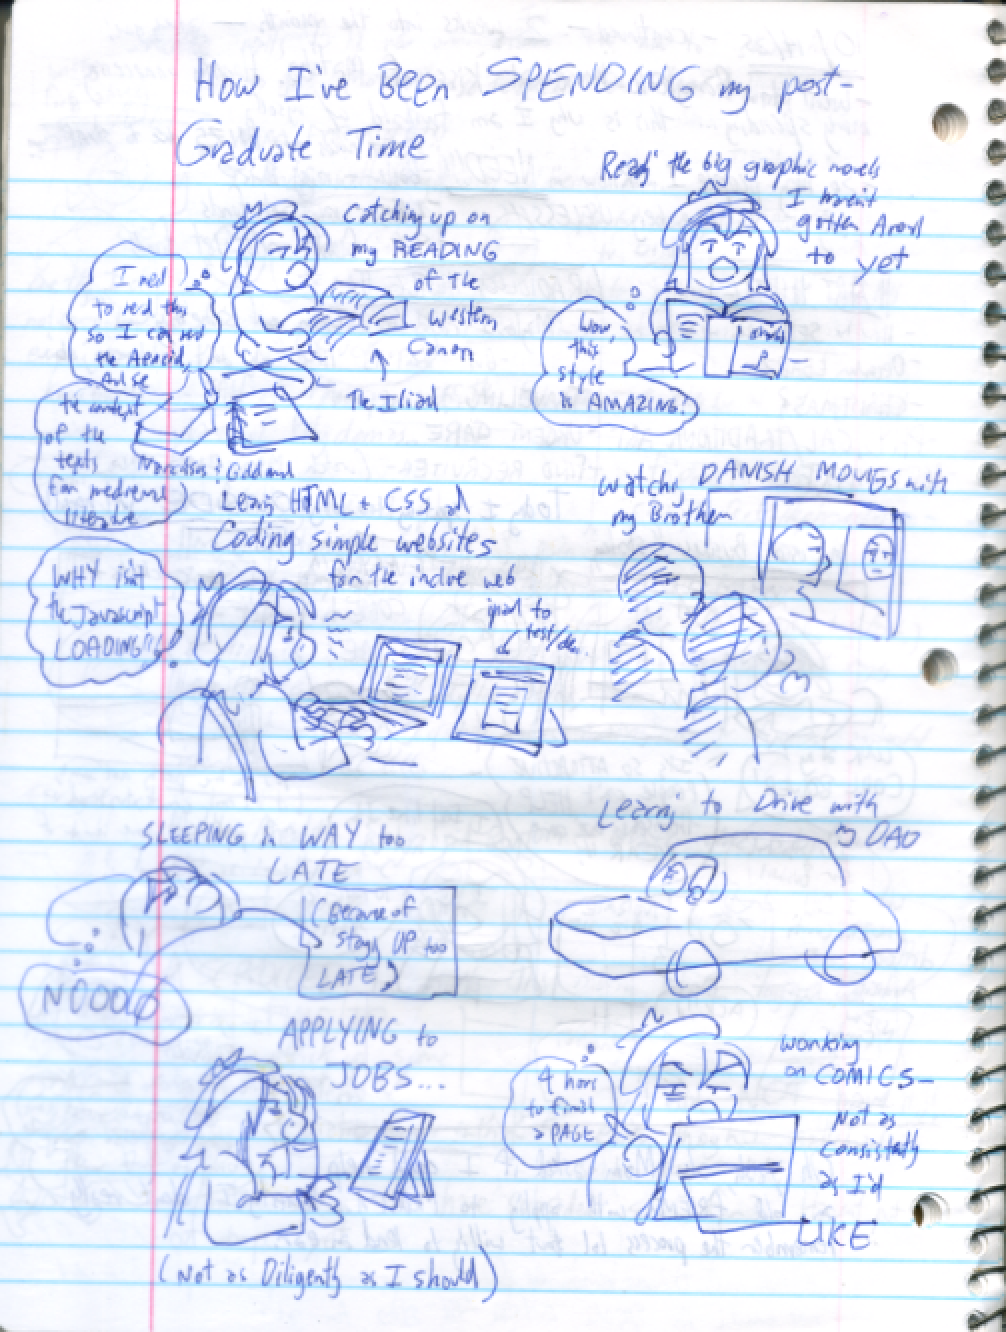 How I've Been SPENDING my post-
Graduate Time
Catching up on
my READING
of the
Western
Canon
The Iliad
I need
to red this
so I can red
the Aeneid,
the context
of the
texts
for medieval
literature
Read the big graphic novels
I haven't
gotten Arond
to yet
Wow,
this
style
is AMAZING!
HTML + CSS
Coding simple websites
for the indie web
ipad to
WHY isn't
the Javascript
LOADING!!
DANISH MOVIES with
my Brother
SLEEPING in WAY too
LATE
(Because of
UP too
LATE)
NOOOO
to Drive with
my DAD
APPLYING to
JOBS...
(Not as Diligently as I should)
working
on COMICS—
Not as
consistently
as I'd
LIKE
4 hours
to finish
a PAGE